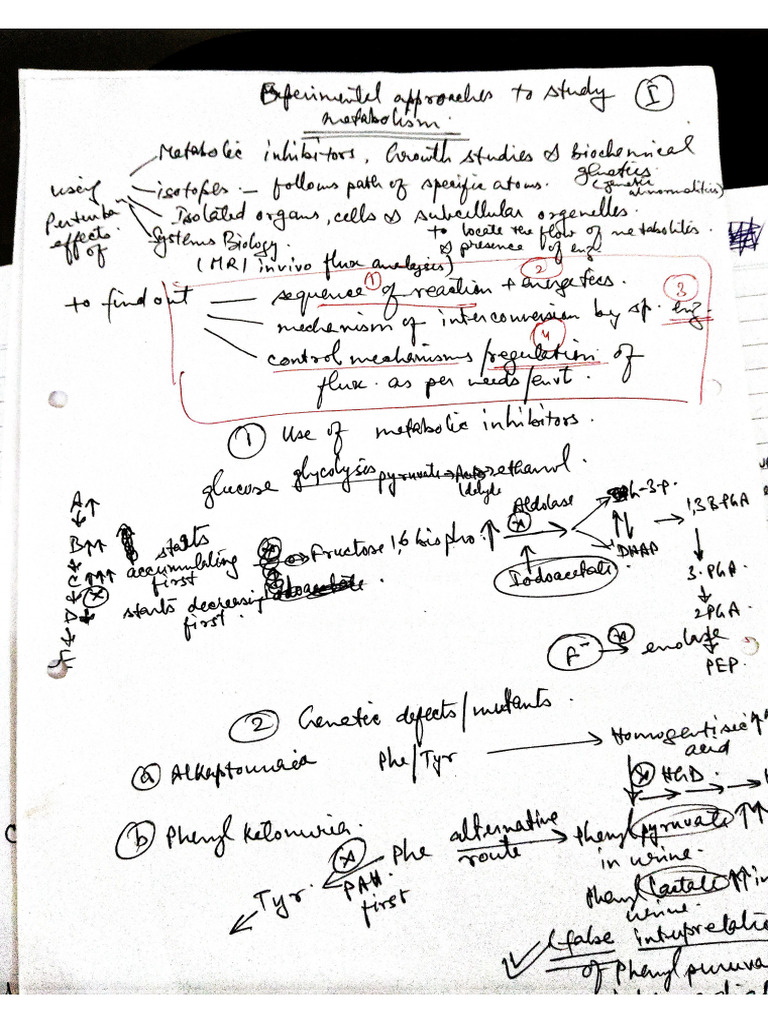 Experimental approaches to study I
metabolism.
Metabolic inhibitors, Growth studies & Biochemical
genetics
(genetic abnormalities)
using isotopes — follows path of specific atoms.
Perturba Isolated organs, cells & subcellular organelles.
effects to locate the flow of metabolites
of Systems Biology & presence of enz
(MRI invivo flux analysis)
to find out — sequence 1 of reaction + energetics. 2
mechanism of interconversion by sp. enz. 3
control mechanisms/regulation 4 of
flux as per needs/envt.
1 Use of metabolic inhibitors.
glucose glycolysis pyruvate ethanol.
ldehyde
A ↑
B ↑↑ starts accumulating first
C ↑↑↑
x starts decreasing first
D
Fructose 1,6 bispho. ↑ x Aldolase
Iodoacetate
DHAP
1,3 BPGA
3-PGA
2PGA
F⁻ x enolase
PEP.
2 Genetic defects/mutants.
a Alkaptonuria Phe/Tyr → Homogentisic ↑
acid
x HGD.
b Phenyl ketonuria.
Tyr. x PAH first Phe alternative route → Phenyl pyruvate ↑↑
in urine.
Phenyl Lactate ↑↑ in
urine.
(false interpretatio
of Phenyl